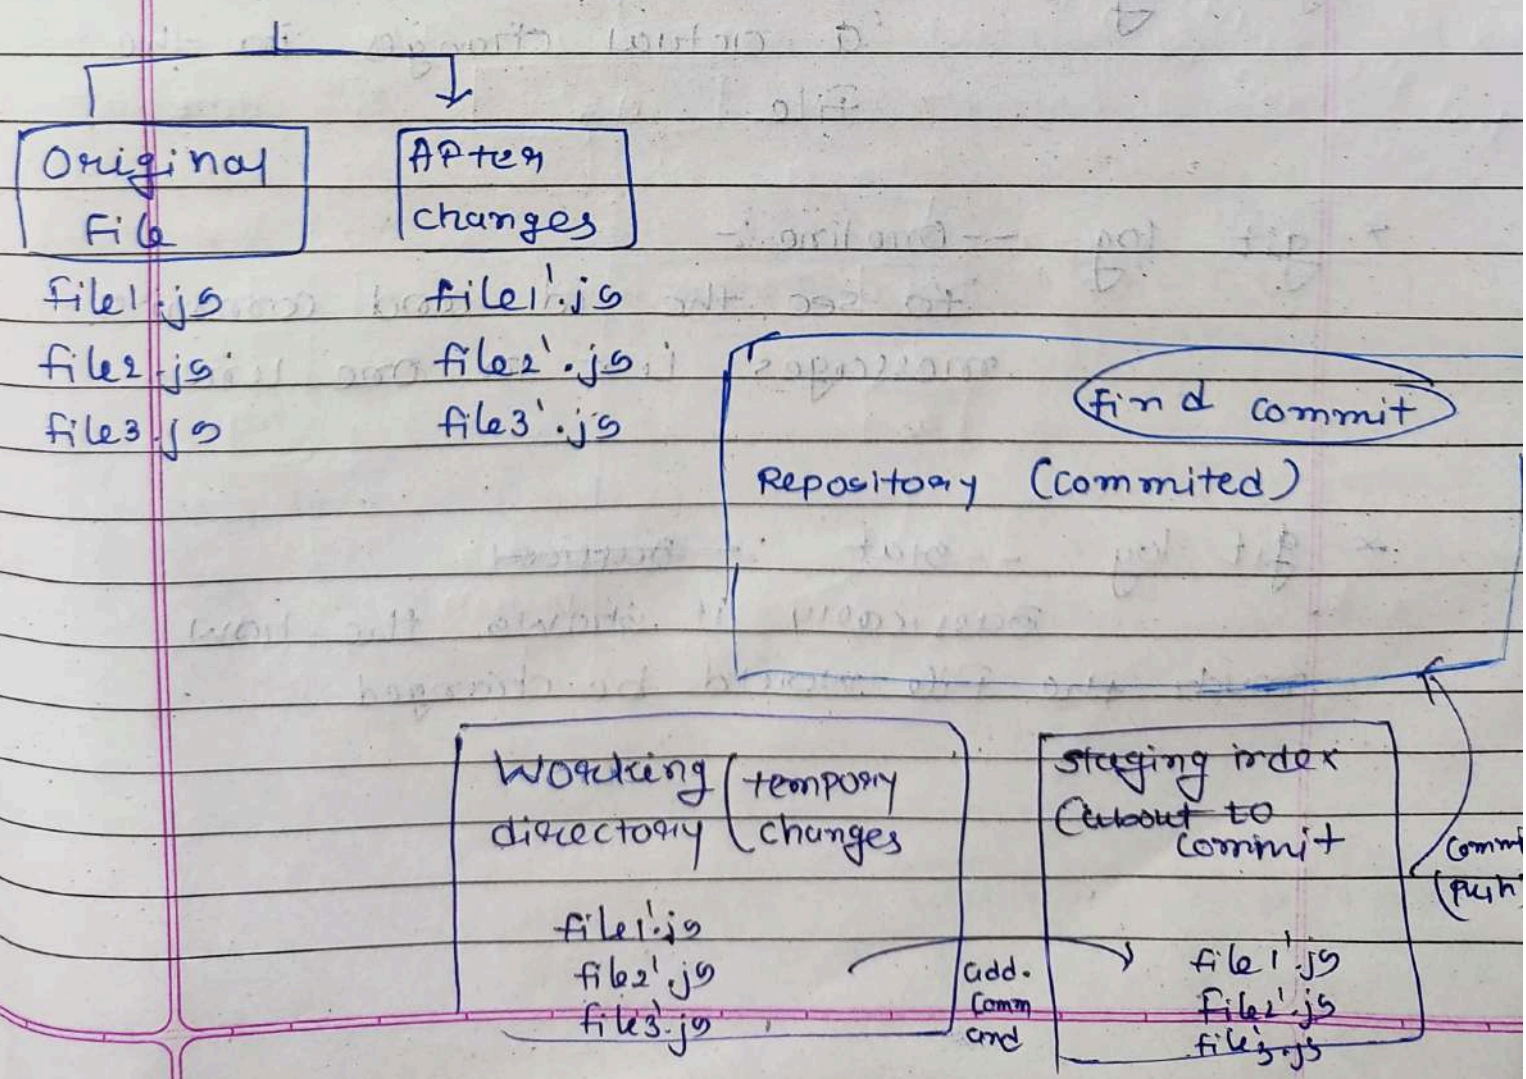 Original
File
file1.js
file2.js
file3.js
After
changes
file1'.js
file2'.js
file3'.js
find commit
Repository (commited)
Working
directory
(tempory
changes
file1'.js
file2'.js
file3'.js
add.
comm
and
staging index
(about to
commit
file1'.js
file2'.js
file3'.js
comm
(push)